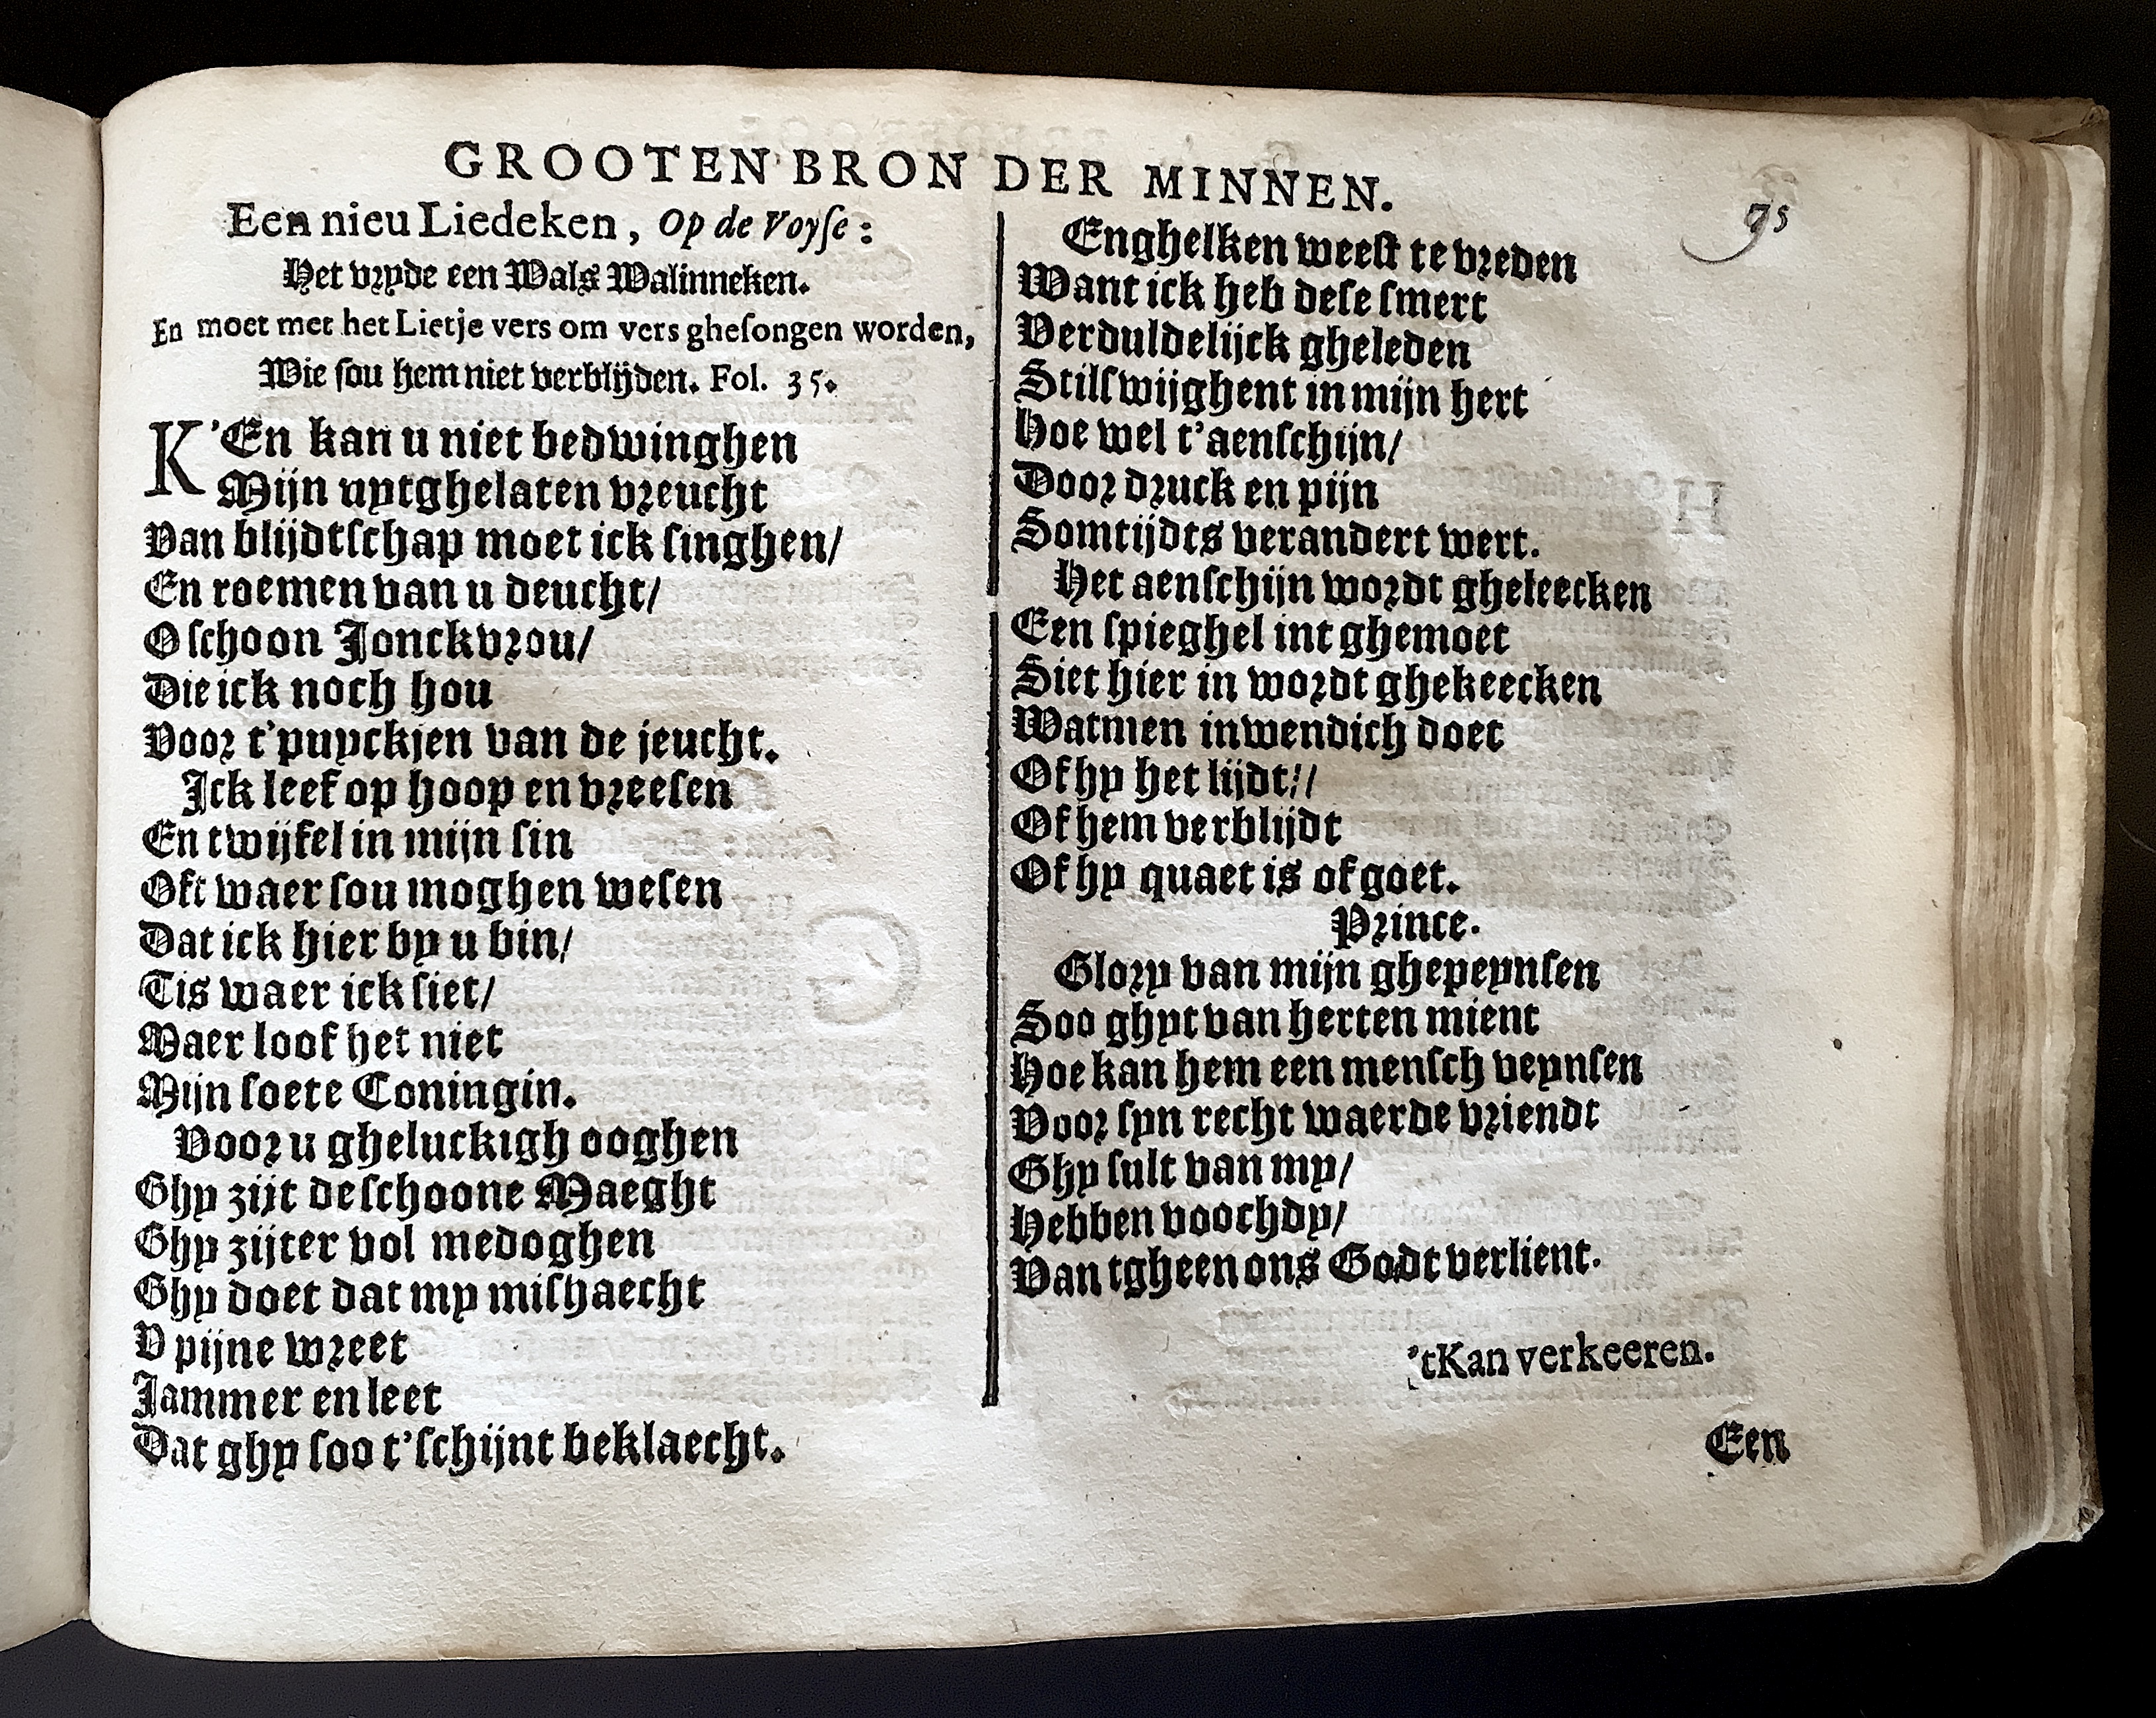 GROOTEN BRON DER MINNEN.
95
Een nieu Liedeken, Op de Voyſe:
Het vryde een Wals Walinneken.
En moet met het Lietje vers om vers gheſongen worden,
Wie ſou hem niet verblijden. Fol. 35.
K'En kan u niet bedwinghen
Mijn uytghelaten vreucht
Van blijdtſchap moet ick ſinghen/
En roemen van u deucht/
O ſchoon Jonckvrou/
Die ick noch hou
Voor t'puyckjen van de jeucht.
Ick leef op hoop en vreeſen
En twijfel in mijn ſin
Oft waer ſou moghen weſen
Dat ick hier by u bin/
Tis waer ick ſiet/
Maer loof het niet
Mijn ſoete Coningin.
Voor u gheluckigh ooghen
Ghy zijt de ſchoone Maeght
Ghy zijter vol medoghen
Ghy doet dat my miſhaecht
V pijne wreet
Jammer en leet
Dat ghy ſoo t'ſchijnt beklaecht.
Enghelken weeſt te vreden
Want ick heb deſe ſmert
Verduldelijck gheleden
Stilſwijghent in mijn hert
Hoe wel t'aenſchijn/
Door druck en pijn
Somtijdts verandert wert.
Het aenſchijn wordt gheleecken
Een ſpieghel int ghemoet
Siet hier in wordt ghekeecken
Watmen inwendich doet
Of hy het lijdt://
Of hem verblijdt
Of hy quaet is of goet.
Prince.
Glory van mijn ghepeynſen
Soo ghyt van herten mient
Hoe kan hem een menſch veynſen
Voor ſyn recht waerde vriendt
Ghy ſult van my/
Hebben voochdy/
Van tgheen ons Godt verlient.
'tKan verkeeren.
Een